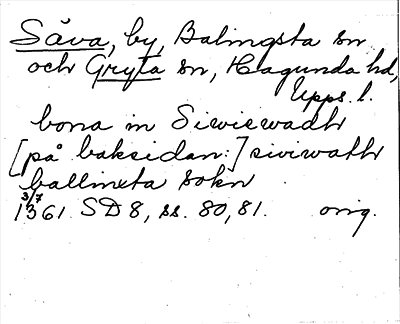 Säva, by, Balingsta sn
och Gryta sn, Hagunda hd,
Upps. l.
bona in Siwiswadh
[på baksidan:] siviwath
ballinxta sokn
3/7
1361 SD 8, ss. 80, 81. orig.